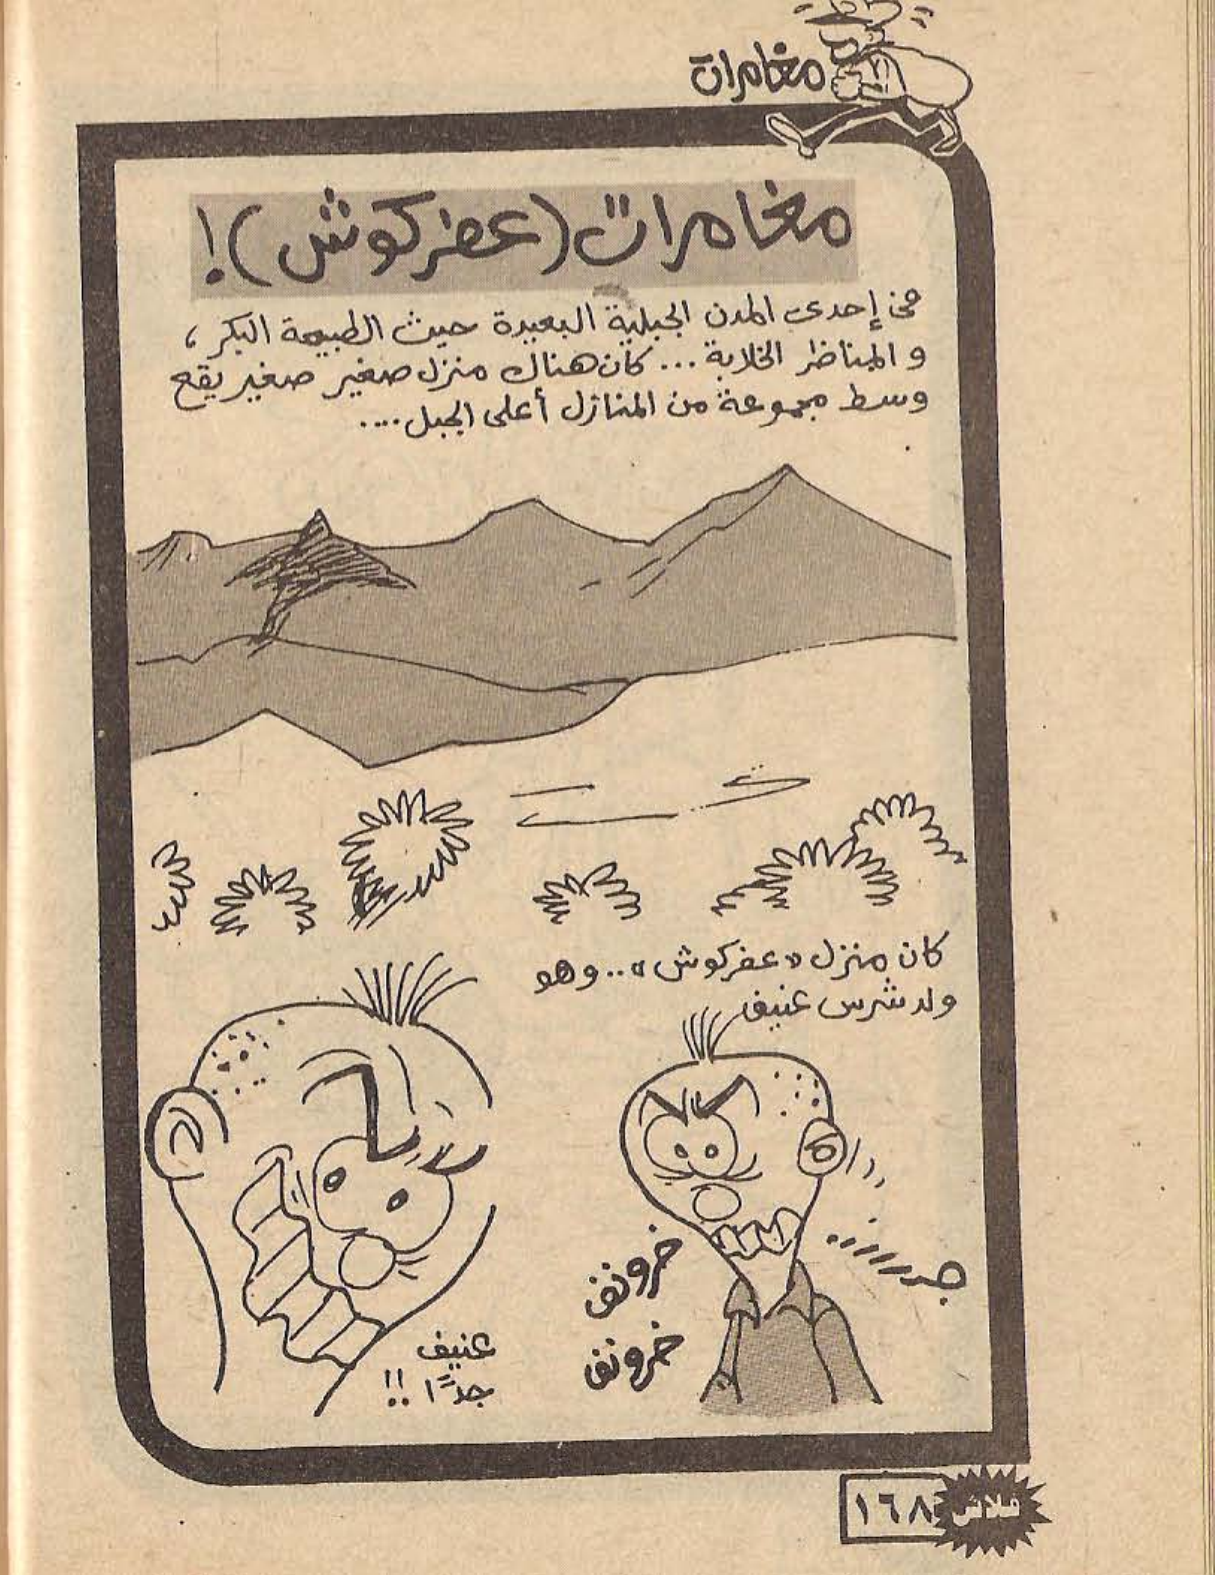 مغامرات
مغامرات (عفركوش) !
في إحدى المدن الجبلية البعيدة حيث الطبيعة البكر ،
و المناظر الخلابة ... كان هناك منزل صغير صغير يقع
وسط مجموعة من المنازل أعلى الجبل ....
كان منزل «عفركوش» .. وهو
ولد شرس عنيف
خرونف
خرونف
عنيف
جدًا !!
فلاش
١٦٨